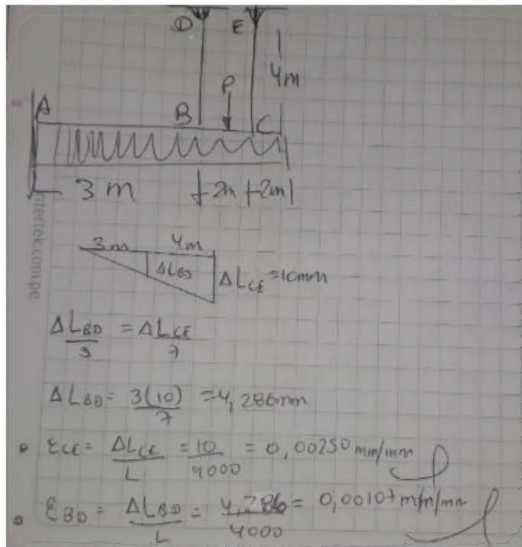 D E
4m
P
A
B
C
3 m 2m 2m
3m 4m
ΔLBD ΔLCE =10mm
ΔLBD/3 = ΔLCE/7
ΔLBD= 3(10)/7 =4,286mm
εCE= ΔLCE/L = 10/4000 = 0,00250 mm/mm
εBD= ΔLBD/L = 4,286/4000 = 0,00107 mm/mm
ntertek.com.pe